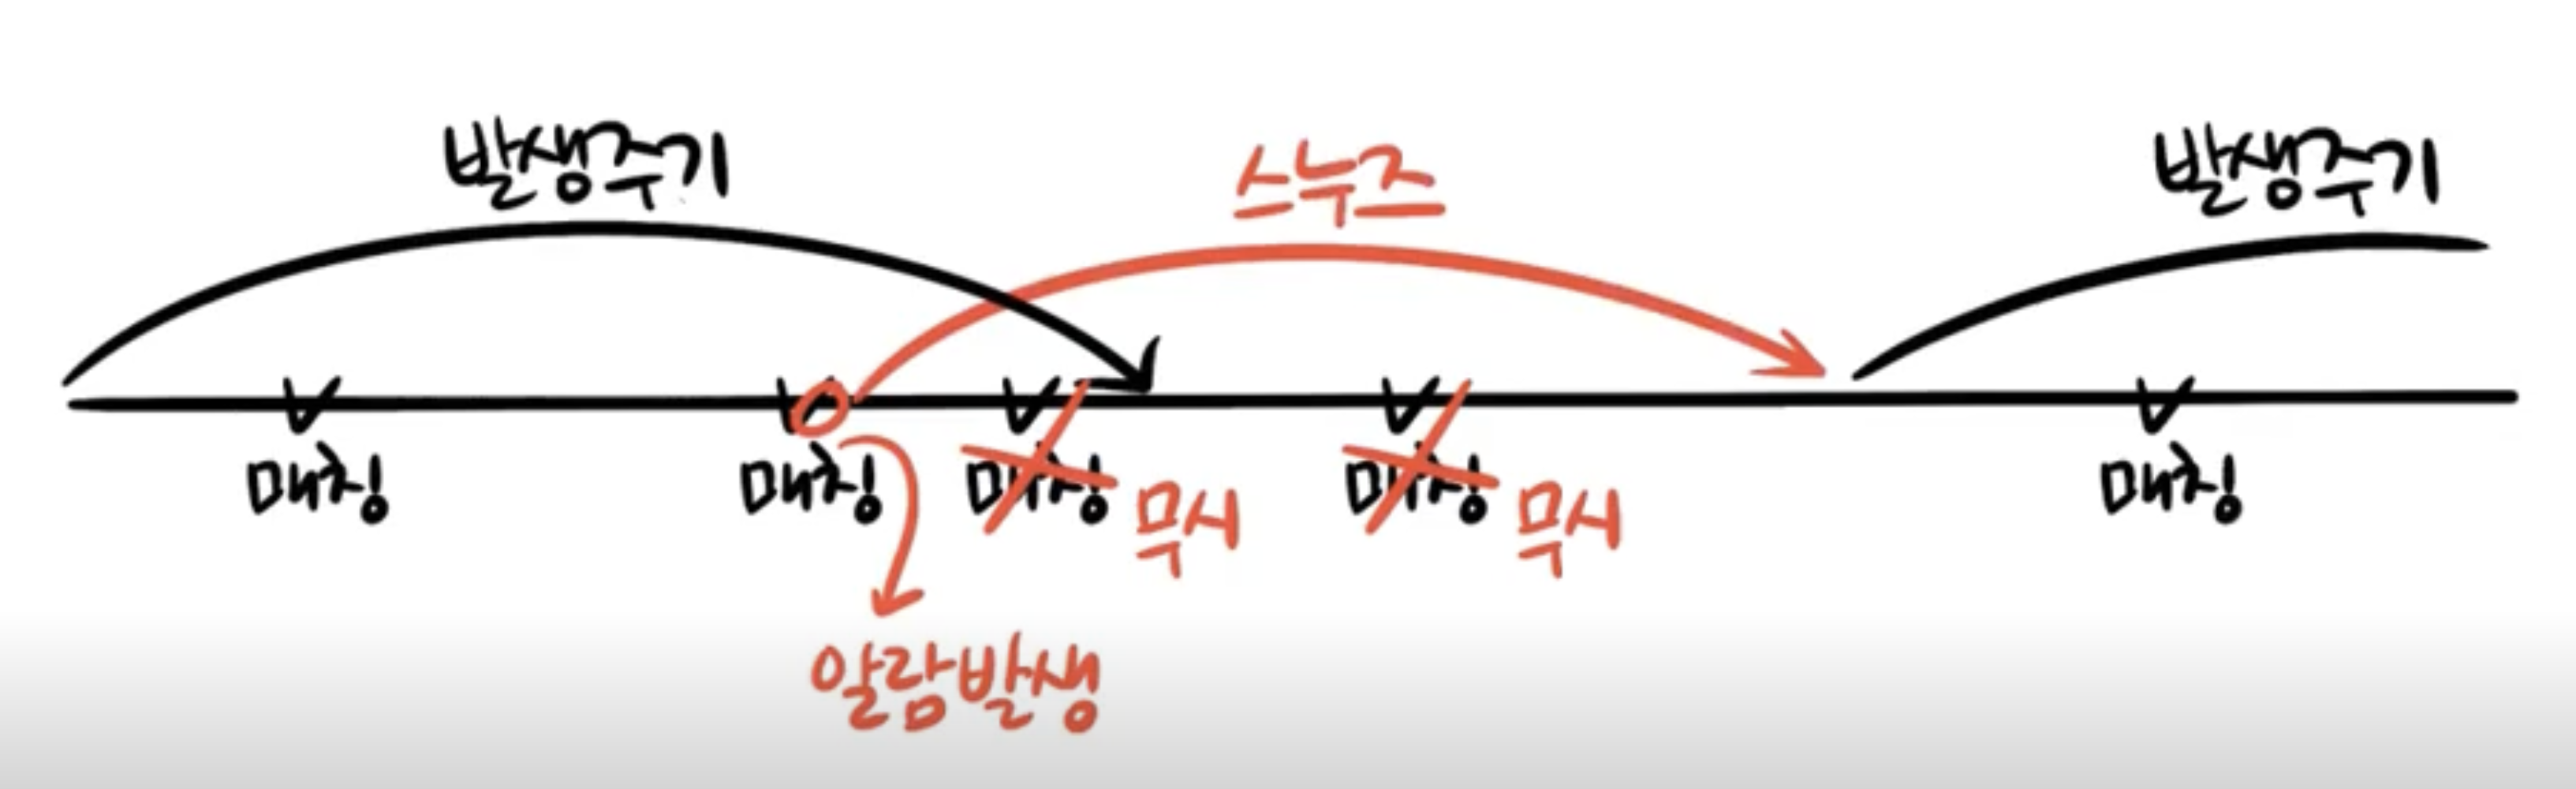 발생주기
스누즈
발생주기
매칭
매칭
매칭
무시
매칭
무시
매칭
알람발생